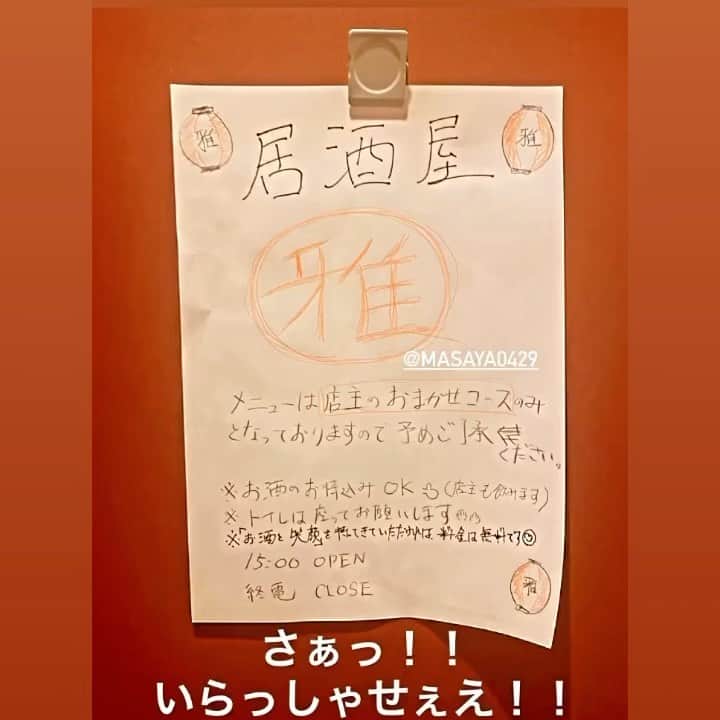 雅
雅
居酒屋
雅
@MASAYA0429
メニューは店主のおまかせコースのみ
となっておりますので予めご了承
ください。
※お酒のお持込みOK(店主も飲めます)
※トイレは座ってお願いします
※「お酒と笑顔」を
料金は無料です
15:00 OPEN
終電 CLOSE
雅
さぁっ！！
いらっしゃせぇえ！！